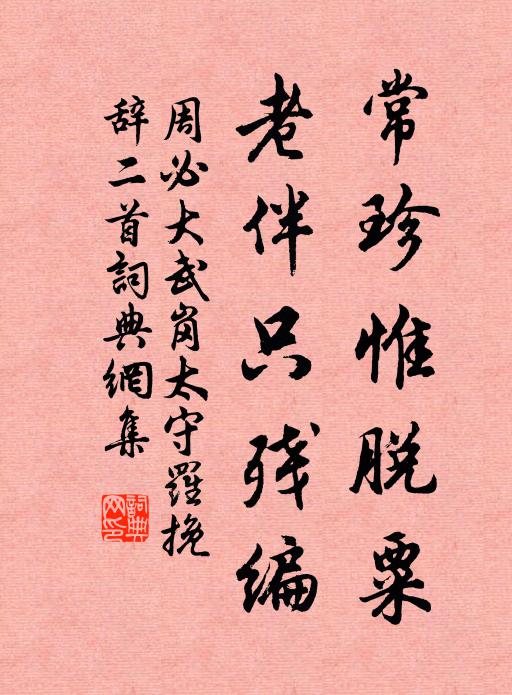 常珍惟脱粟
老伴只残编
周必大武岗太守羅挽
辞二首詞典網集
詞典
网印